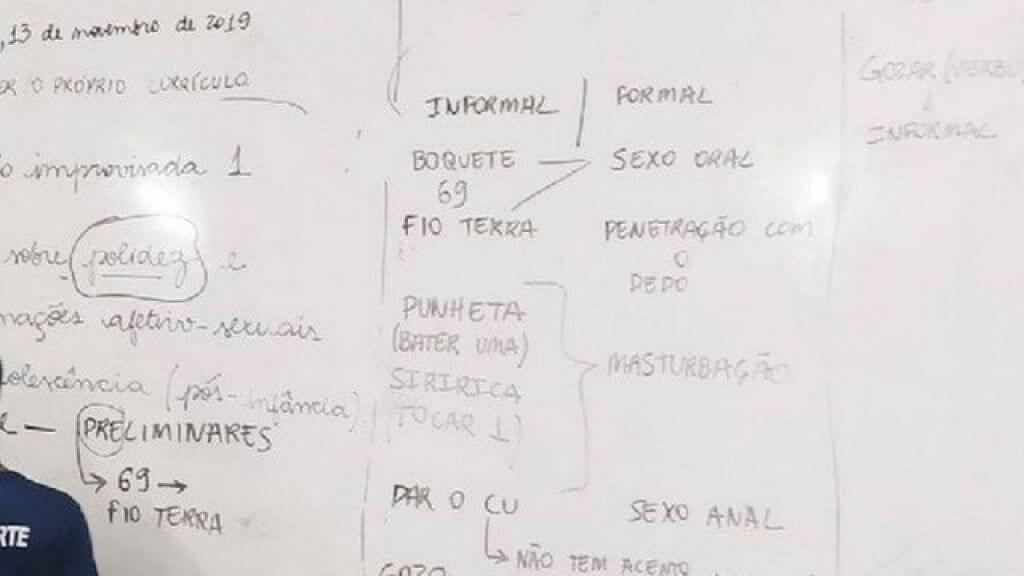 , 13 de novembro de 2019
O PRÓPRIO CURRÍCULO
improvisada 1
sobre polidez e
afetivo-sexuais
(pós-infância)
— PRELIMINARES
↳ 69 →
FIO TERRA
RTE
INFORMAL | FORMAL
BOQUETE — SEXO ORAL
69
FIO TERRA PENETRAÇÃO COM
O
DEDO
PUNHETA
(BATER UMA)
MASTURBAÇÃO
SIRIRICA
TOCAR 1)
DAR O CU SEXO ANAL
↳ NÃO TEM ACENTO
GOZO
GOZAR (VERBO)
↓
INFORMAL